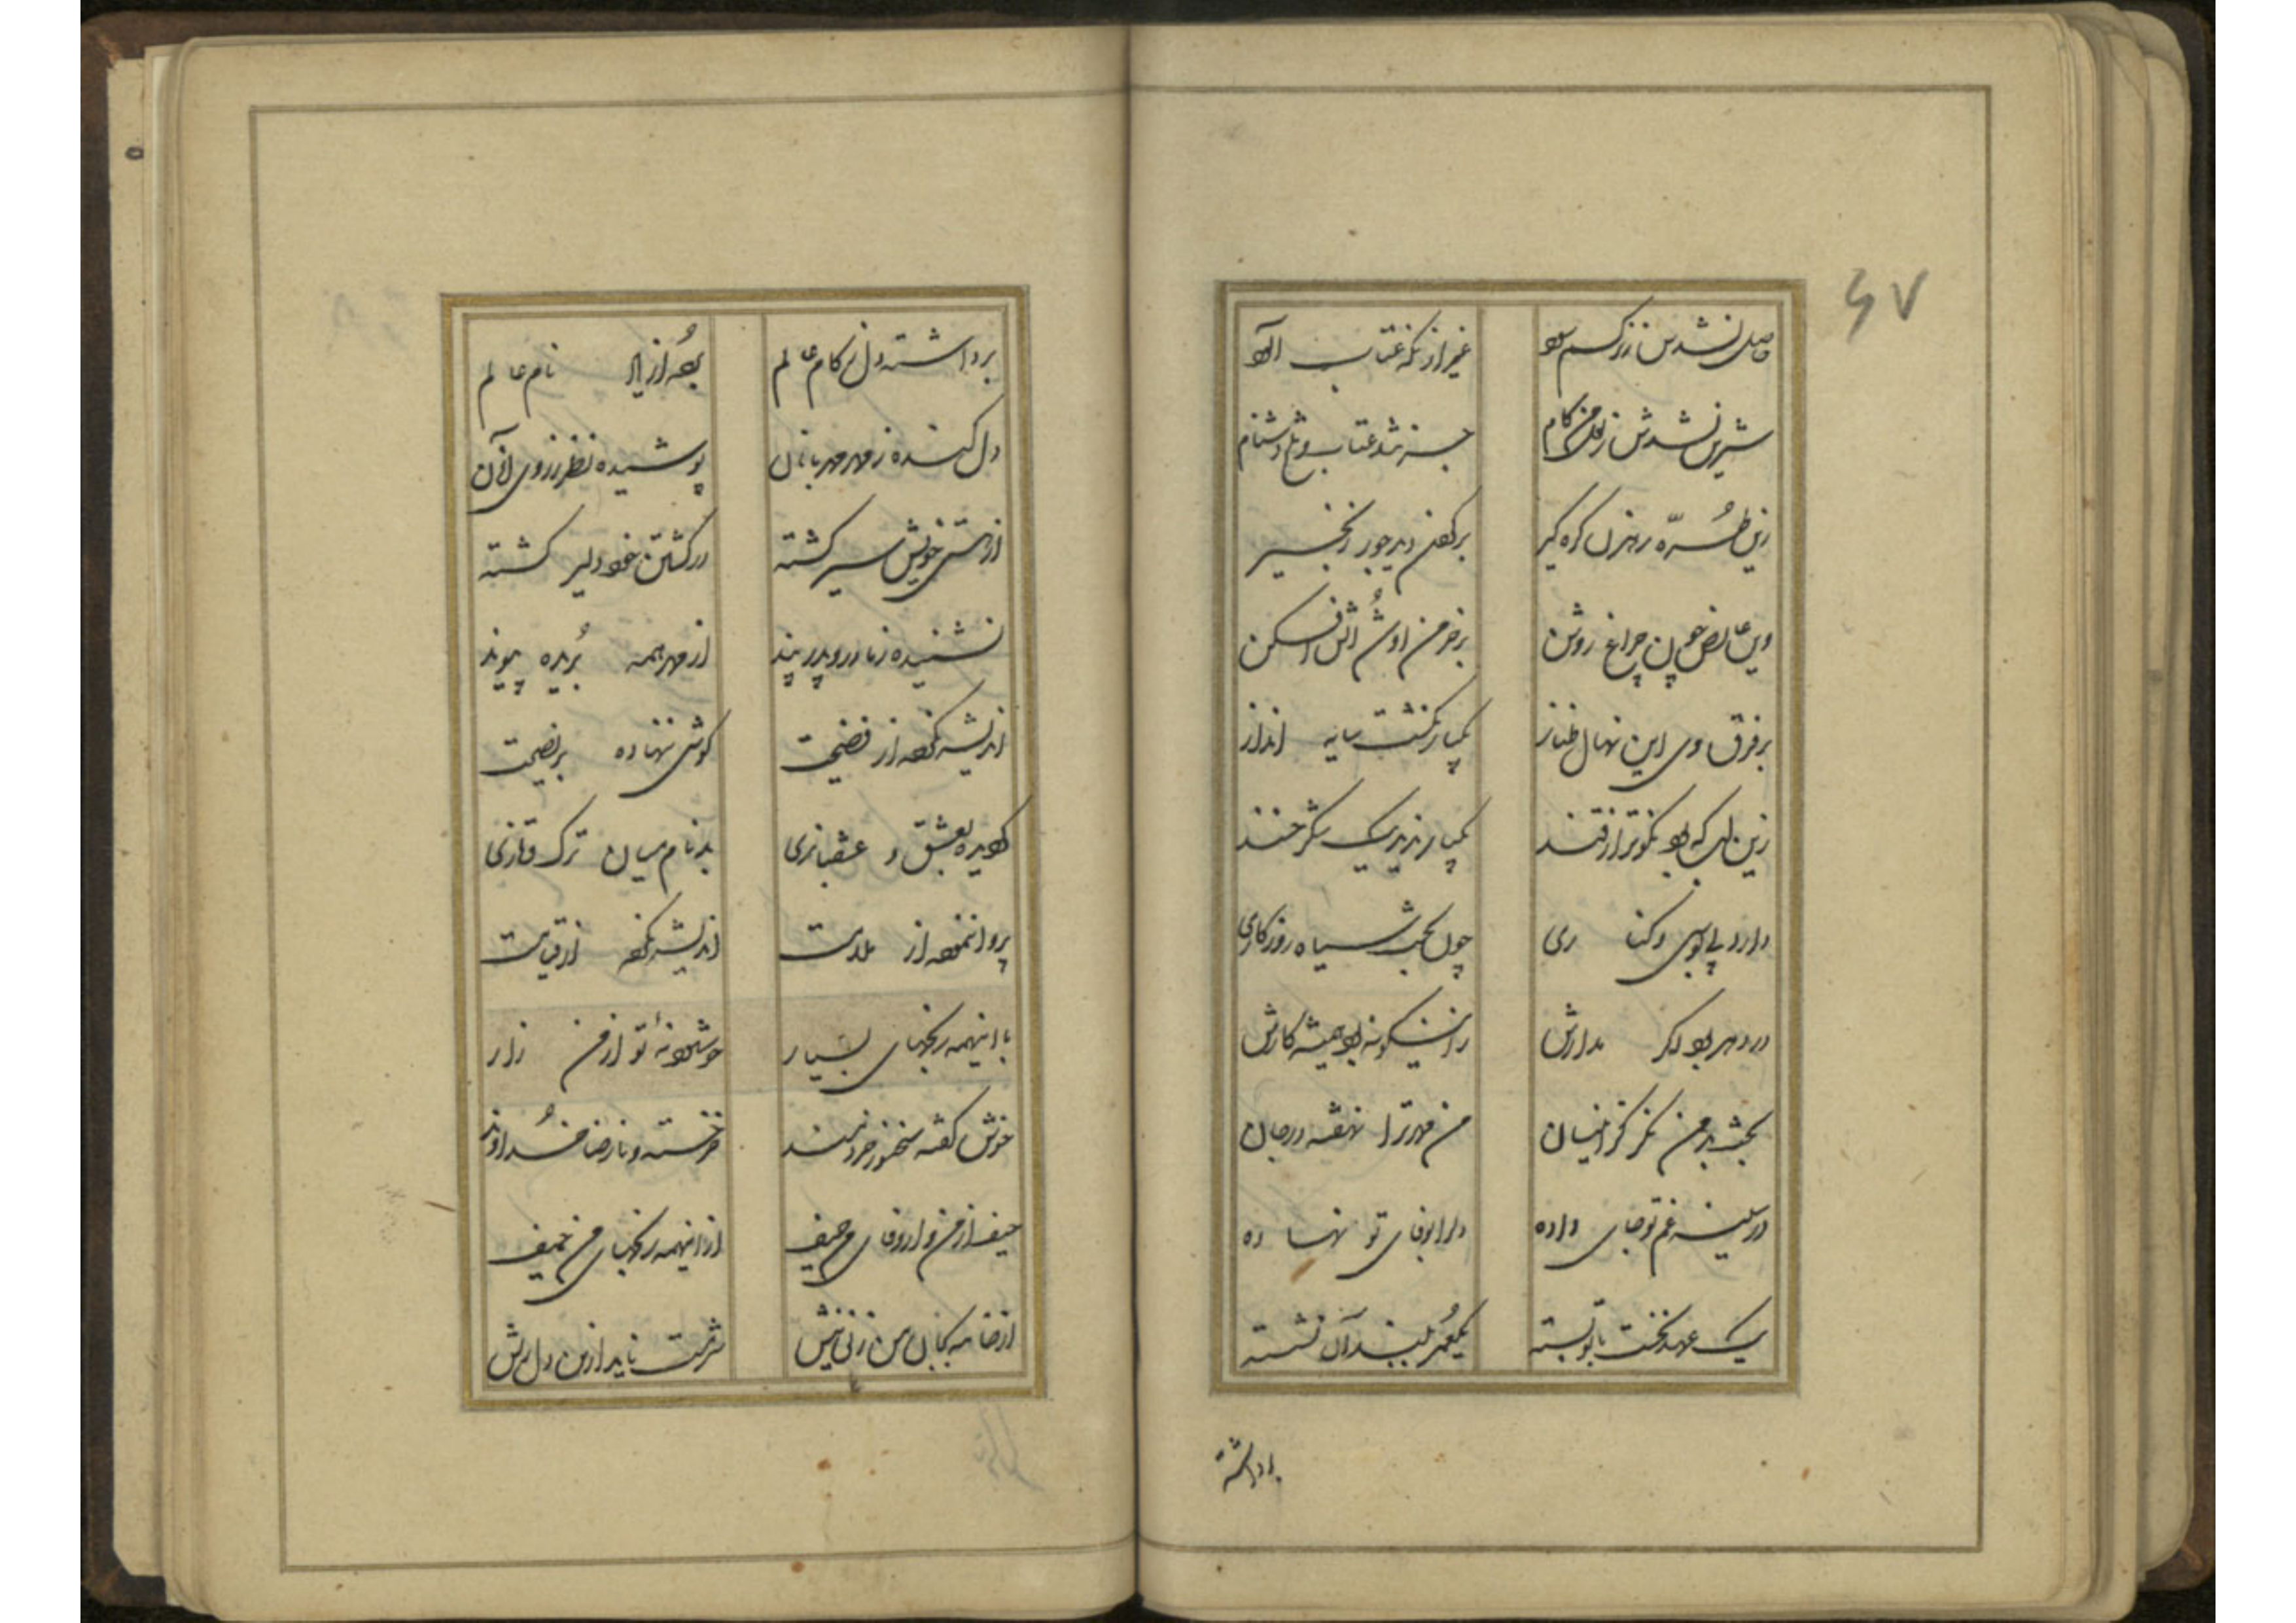 ۶۷
حاصل نشدش ز نرگسم
غیر از نگه عتاب
شیرین نشدش ز لعل من کام
جز زهر عتاب و تلخ دشنام
زین طره رهزن گره گیر
برگردن زنجیر
وین عارض چون چراغ روشن
بر خرمن او شد آتش افکن
بر فرق وی این نهال طناز
یکبار نگشت سایه انداز
زین لب که بود نکوتر از قند
یکبار ندید یک شکرخند
دارد پی بوس و کناری
چون بخت سیاه روزگاری
در دهر بود اگر مدارش
زاینگونه بود همیشه کارش
من مهر ترا نهفته در جان
در سینه غم تو جای داده
دل را بوفای تو نهاده
یک عهد نخست با تو بسته
یکعمر نشسته
برداشته
برداشته دل ز کام عالم
نام عالم
دل کنده ز مهر مهربانان
پوشیده نظر ز روی
از هستی خویش سیر گشته
در کشتن خود دلیر گشته
نشنیده ز مادر و پدر پند
از مهر همه بریده پیوند
اندیشه نکرده از فضیحت
گوشی ننهاده بر نصیحت
گردیده بعشق و عشقبازی
بدنام میان ترک و تازی
پروا ننموده از ملامت
اندیشه نکرده از قیامت
با اینهمه رنجهای بسیار
خوشنود نهٔ تو از من زار
خوش گفته سخنور خردمند
خر خسته و نارضا خداوند
حیف از من و از وفای من حیف
از اینهمه رنجهای من حیف
شرمت ناید از من دل ریش